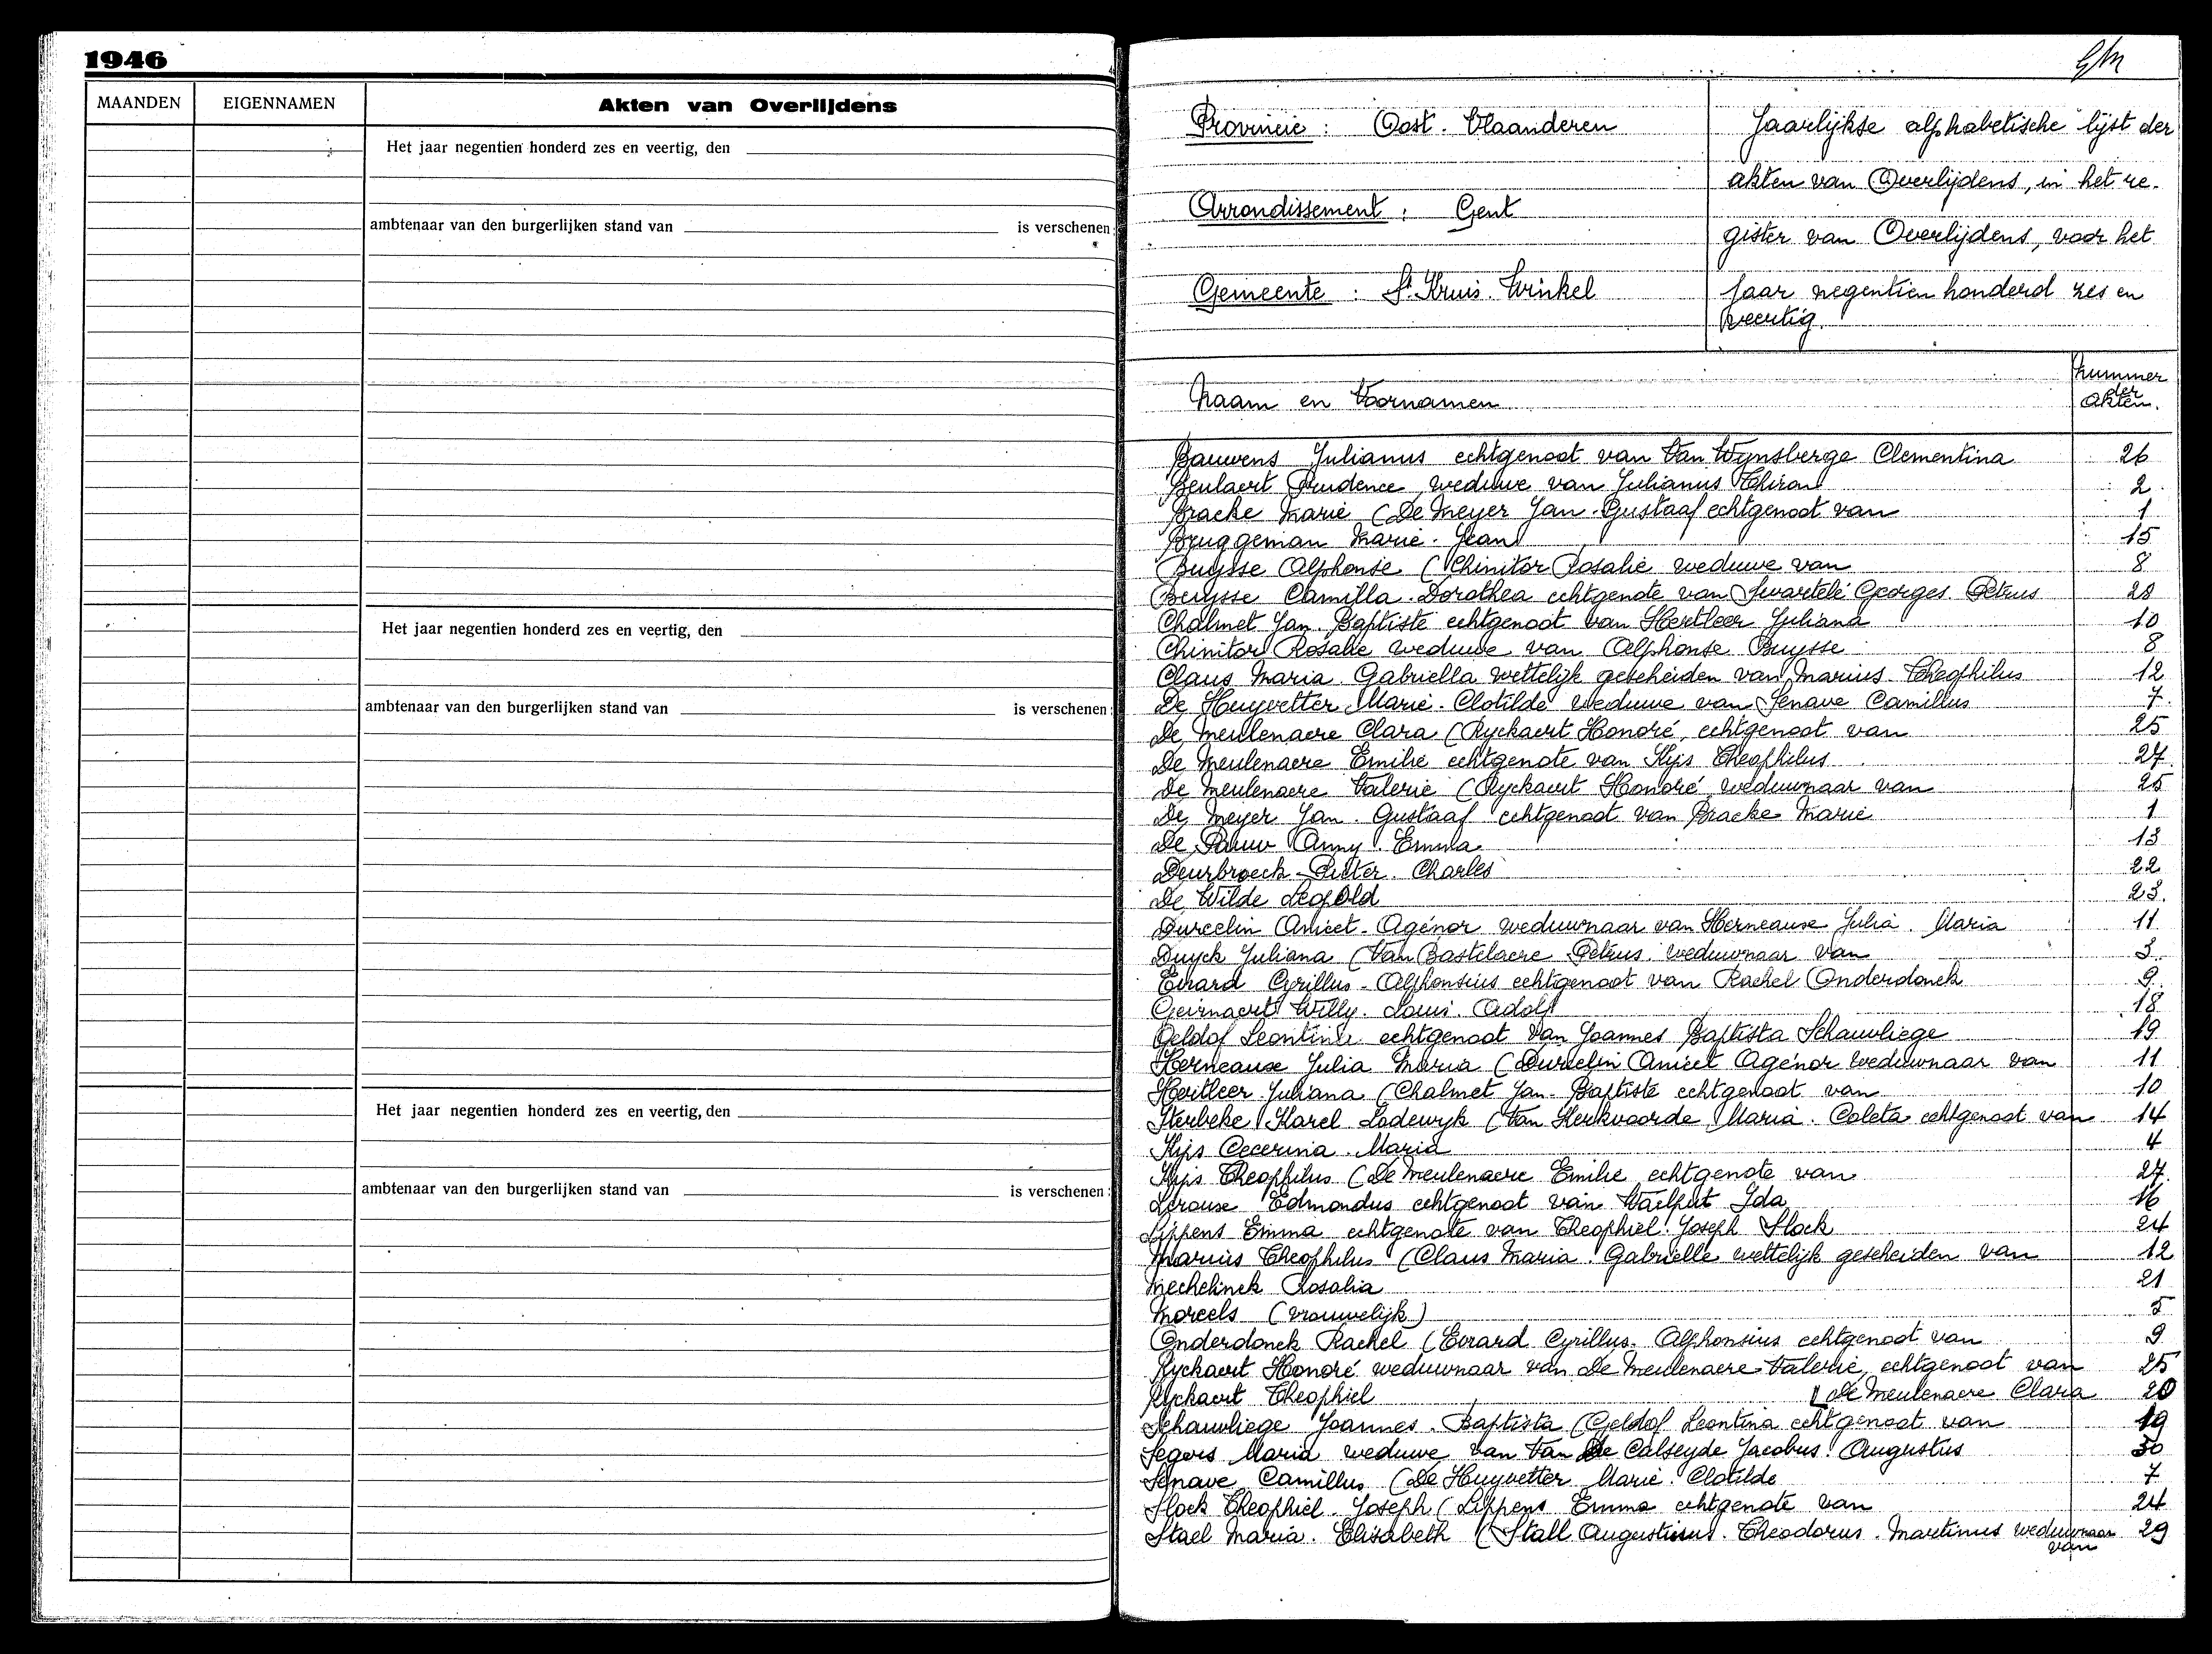 1946
MAANDEN EIGENNAMEN Akten van Overlijdens
Het jaar negentien honderd zes en veertig, den
ambtenaar van den burgerlijken stand van is verschenen
Het jaar negentien honderd zes en veertig, den
ambtenaar van den burgerlijken stand van is verschenen:
Het jaar negentien honderd zes en veertig, den
ambtenaar van den burgerlijken stand van is verschenen:
Provincie : Oost. Vlaanderen
Arrondissement : Gent
Gemeente : St Kruis. Winkel
Jaarlijkse alphabetische lijst der
akten van Overlijdens, in het re-
gister van Overlijdens, voor het
jaar negentien honderd zes en
veertig.
Naam en Voornamen
Nummer
der
akten.
Bauwens Julianus echtgenoot van Van Wynsberge Clementina 26
Beulaert Prudence weduwe van Julianus Thiron 2
Bracke Marie (De Meyer Jan. Gustaaf echtgenoot van 1
Bruggeman Marie. Jean 15
Buysse Alphonse (Chinitor Rosalie weduwe van 8
Buysse Camilla. Dorothea echtgenote van Swartelé Georges Petrus 28
Chalmet Jan. Baptiste echtgenoot van Hertleer Juliana 10
Chinitor Rosalie weduwe van Alphonse Buysse 8
Claus Maria. Gabriella wettelijk gescheiden van Marius Theophilus 12
De Huyvetter Marie. Clotilde weduwe van Senave Camillus 7
De Meulenaere Clara (Ryckaert Honoré, echtgenoot van 25
De Meulenaere Emilie echtgenote van Kijs Theophilus 27
De Meulenaere Valerie (Ryckaert Honoré weduwnaar van 25
De Meyer Jan. Gustaaf echtgenoot van Bracke Marie 1
De Pauw Anny. Emma 13
Deurbroeck Pieter. Charles 22
De Wilde Leopold 23.
Durcelin Anicet. Agénor weduwnaar van Herneause Julia. Maria 11
Duyck Juliana (Van Bastelaere Petrus weduwnaar van 3
Evrard Cyrillus. Alphonsius echtgenoot van Rachel Onderdonck 9
Geirnaert Willy. Louis. Adolf 18
Geldof Leontine echtgenoot van Joannes Baptista Schauvliege 19
Herneause Julia Maria (Durcelin Anicet Agénor weduwnaar van 11
Hertleer Juliana (Chalmet Jan. Baptiste echtgenoot van 10
Sterbeke Karel Lodewyk (Van Kerkvoorde Maria. Coleta echtgenoot van 14
Kijs Maria 4
Kijs Theophilus (De Meulenaere Emilie echtgenote van 27
Lerouse Edmondus echtgenoot van Vaelput Ida 16
Lippens Emma echtgenote van Theophiel Joseph Slock 24
Marius Theophilus (Claus Maria. Gabrielle wettelijk gescheiden van 12
Mechelinck Rosalia 21
Morcels (vrouwelijk) 5
Onderdonck Rachel (Evrard Cyrillus. Alphonsius echtgenoot van 9
Ryckaert Honoré weduwnaar van De Meulenaere Valerie, echtgenoot van 25
Ryckaert Theophiel [De Meulenaere Clara 20
Schauvliege Joannes. Baptista (Geldof Leontina echtgenoot van 19
Segers Maria weduwe van Van De Calseyde Jacobus. Augustus 30
Senave Camillus (De Huyvetter Marie. Clotilde 7
Slock Theophiel. Joseph (Lippens Emma echtgenote van 24
Stael Maria. Elisabeth (Stall Augustinus. Theodorus. Martinus weduwnaar 29
van